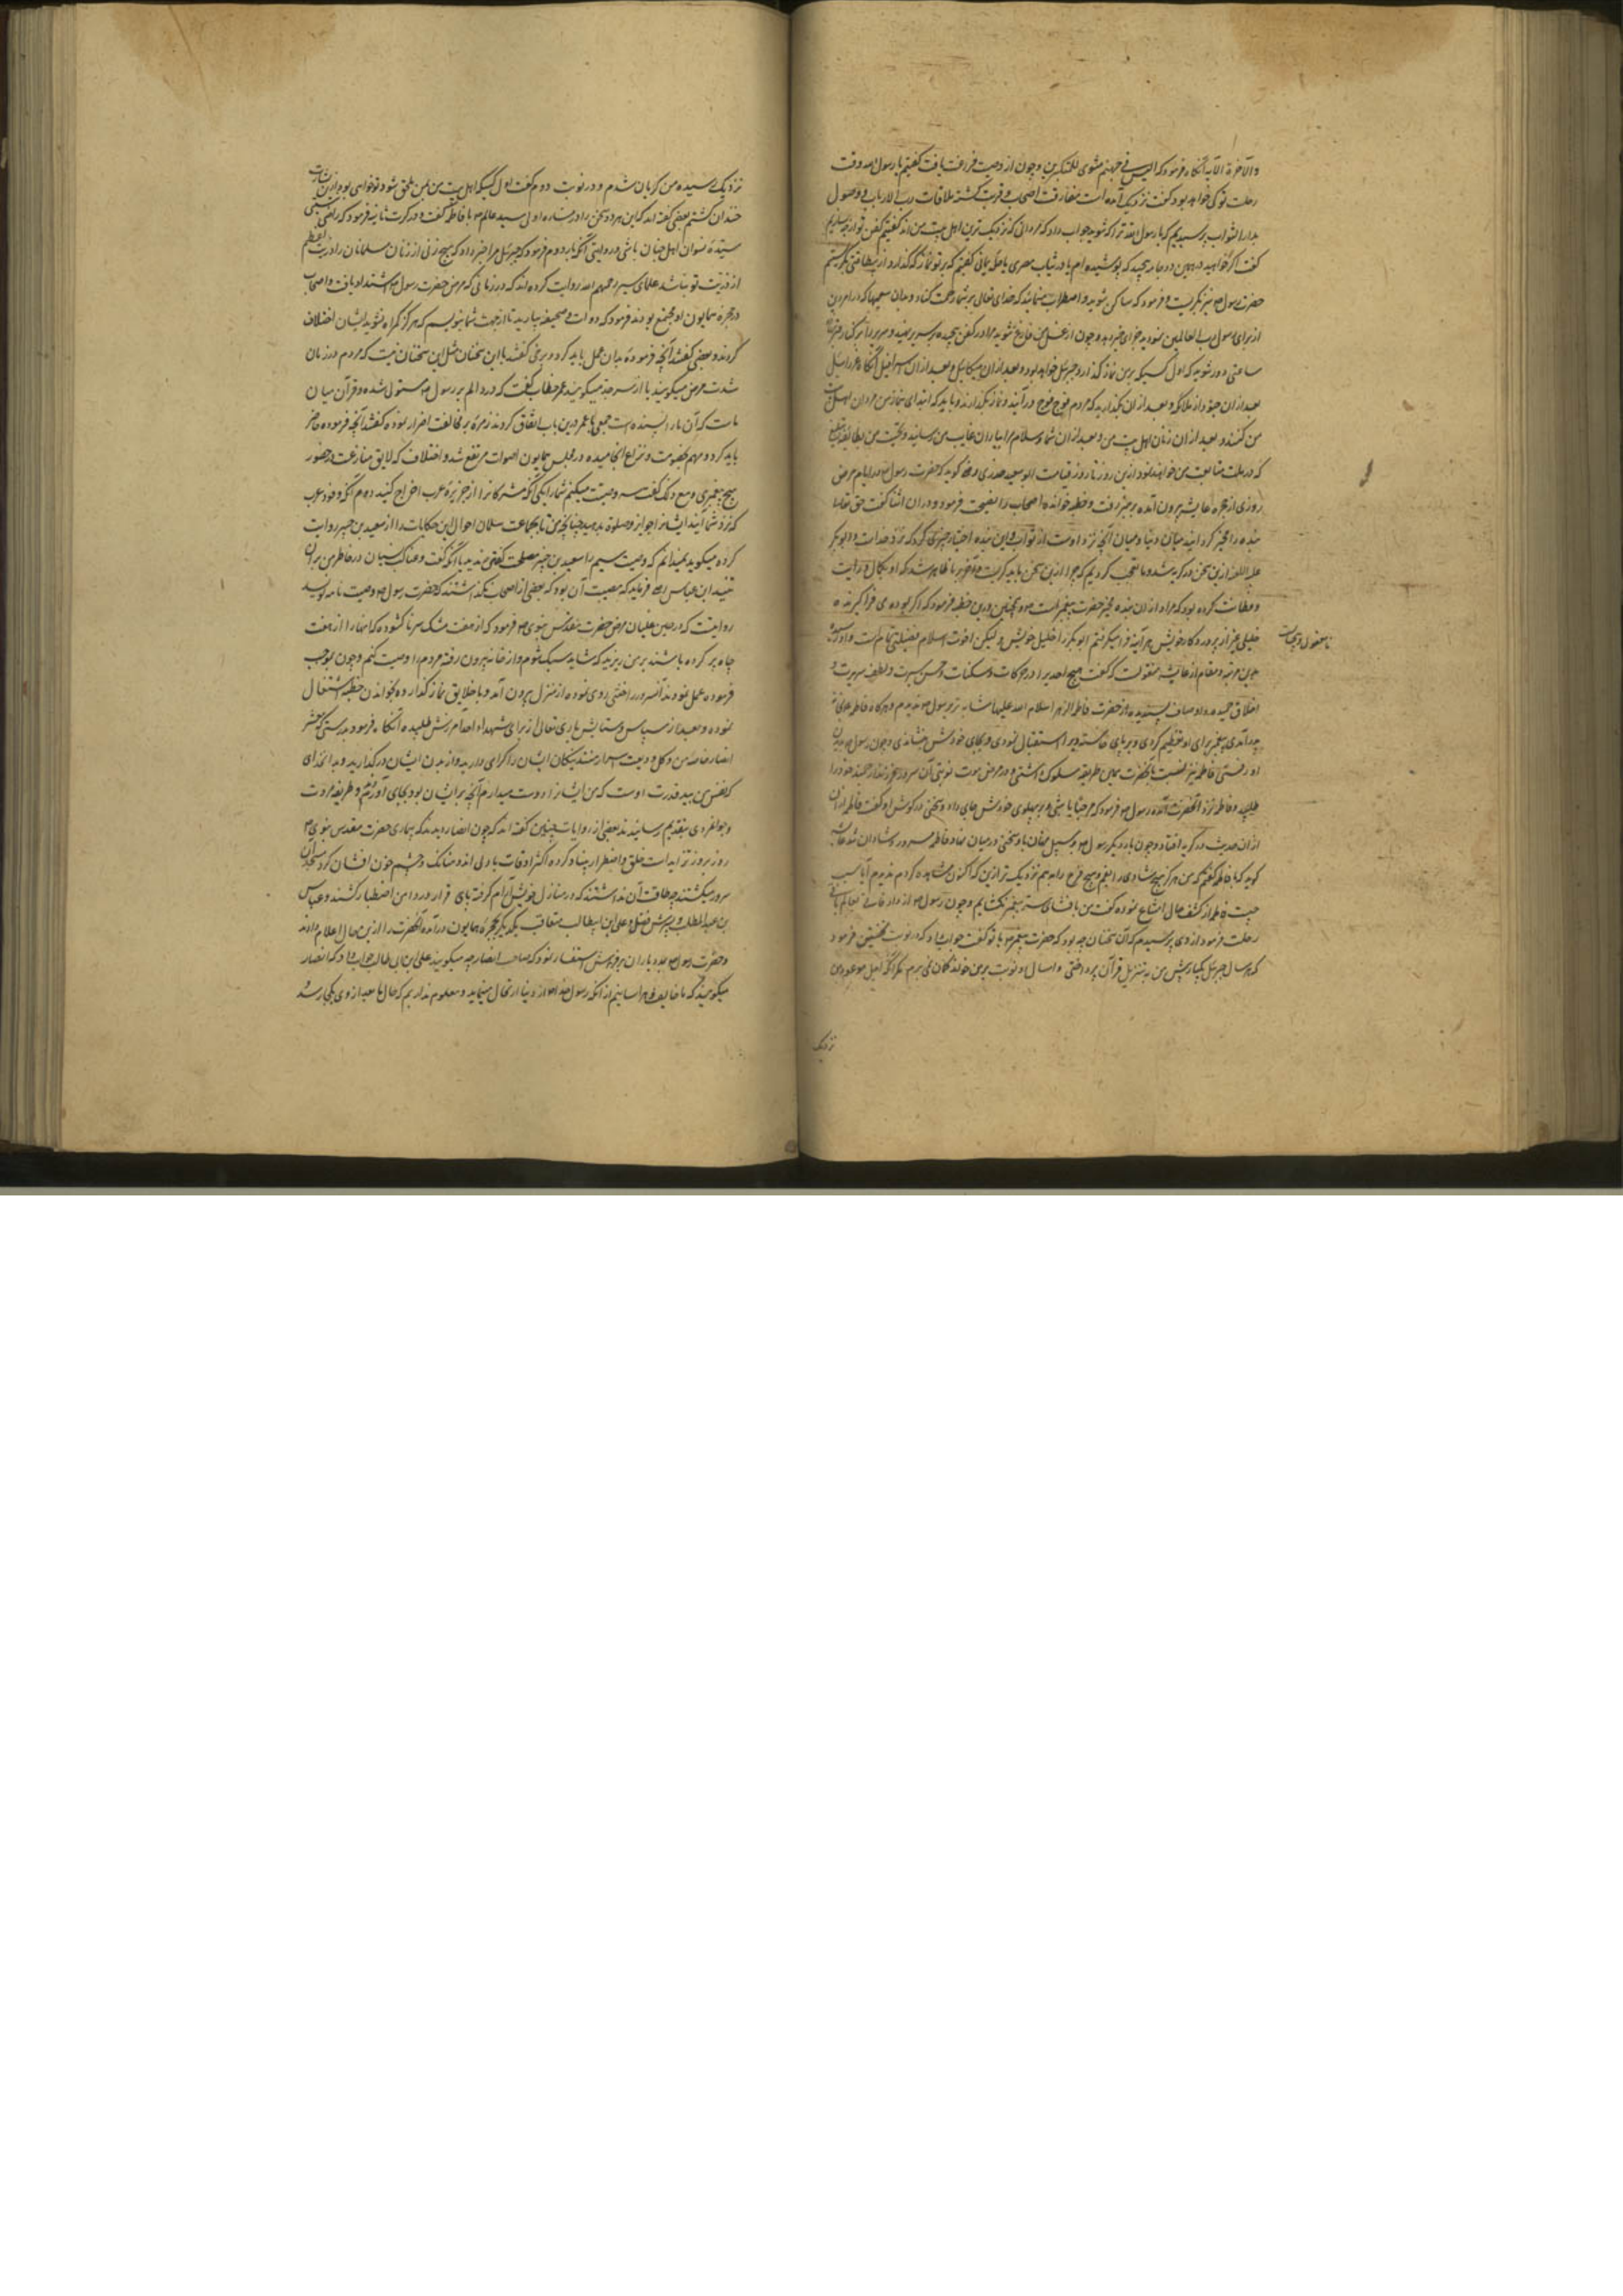 والآخرة الآیه آنگاه فرمود که الیس فی جهنم مثوی للمتکبرین و چون از وصیت فراغت یافت گفتیم یا رسول الله وقت
رحلت تو کی خواهد بود گفت نزدیک آمده است مفارقت اصحاب و قربت گشته ملاقات رب الارباب و وصول
بدار الثواب پرسیدیم که یا رسول الله ترا که شوید جواب داد که مردانی که نزدیک ترین اهل بیت من اند گفتیم کفن تو از چه سازیم
گفت اگر خواهید درهمین دو جامه بپیچید که پوشیده ام یا در ثیاب مصری یا حله یمانی گفتیم که بر تو نماز که گذارد و از بیطاقتی بگریستیم
حضرت رسول نیز بگریست و فرمود که ساکن شوید و اضطراب منمایید که خدای تعالی بر شما رحمت کناد و بدان سعیها که در امر دین
از برای رسول رب العالمین نمودید جزای خیر دهد و چون از غسل من فارغ شوید مرا در کفن پیچیده بر سریر نهید و سریر را بر کنار قبر
ساعتی دور شوید که اول کسی که بر من نماز گذارد جبرئیل خواهد بود و بعد از آن میکاییل و بعد از آن اسرافیل آنگاه عزرائیل
بعد از آن جنود از ملائکه و بعد از آن بگذارید که مردم فوج فوج درآیند و نماز بگذارند و باید که ابتدای نماز من مردان اهل بیت
من کنند و بعد از آن زنان اهل بیت من و بعد از آن شما و سلام مرا بیاران غایب من رسانید و تحیت من بطایفه
که در ملت متابعت من خواهند نمود ازین روز تا روز قیامت ابو سعید خدری گوید که حضرت رسول در ایام مرض
روزی از حجره عایشه بیرون آمده بر منبر رفت و خطبه خوانده اصحاب را نصیحت فرمود و در آن اثنا گفت حق تعالی
بنده را مخیر گردانید میان دنیا و میان آنچه نزد اوست از ثواب و این بنده اختیار چیزی کرد که نزد خداست و ابو بکر
علیه ازین سخن در گریه شد و ما تعجب کردیم که چرا ازین سخن باید گریست و آخر بما ظاهر شد که او بکمال درایت
و فطانت کرده بود که مراد از آن بنده مخیر حضرت پیغمبر است و همچنین درین خطبه فرمود که اگر بوده می فراگیرنده
خلیلی غیر از پروردگار خویش هر آینه فرا میگرفتم ابو بکر را خلیل خویش و لیکن اخوت اسلام فضیلتی تمام است
نامعقول و بیجاست
بدین مرتبه و مقام از عایشه منقولست که گفت هیچ احدی را در حرکات و سکنات و حسن سیرت و لطف سریرت و
اخلاق حمیده و اوصاف پسندیده از حضرت فاطمه الزهرا سلام الله علیها مشابه تر برسول ندیدم و هرگاه فاطمه بخانه
پدر آمدی پیغمبر برای او تعظیم کردی و بر پای خاسته ویرا استقبال نمودی و بجای خودش نشاندی و چون رسول بدیدن
او رفتی فاطمه نیز نسبت بآنحضرت همین طریقه مسلوک داشتی و در مرض موت نوبتی آن سرور فرزند ارجمند خود را
طلبید و فاطمه نزد آنحضرت آمده رسول فرمود که مرحبا یا بنتی و در پهلوی خودش جای داد و سخنی در گوش او گفت فاطمه
از آن حدیث در گریه افتاد و چون بار دیگر رسول بر سبیل نهان با او سخنی در میان نهاد فاطمه مسرور و شادان شد عایشه
گوید که با فاطمه گفتم که من هرگز هیچ شادی را بغم و هیچ فرح را به هم نزدیک تر ازین که اکنون مشاهده کردم ندیدم آیا سبب
چیست فاطمه از کشف حال امتناع نموده گفت من بافشای سر پیغمبر نگشایم و چون رسول از دار فانی بعالم باقی
رحلت فرمود از وی پرسیدم که آن سخنان چه بود که حضرت پیغمبر با تو گفت جواب داد که در نوبت نخستین فرمود
که هر سال جبرئیل یکبار پیش من به تنزیل قرآن پرداختی و امسال دو نوبت بر من خواند گمان نمی برم مگر آنکه اجل موعود من
نزدیک
نزدیک رسیده من گریان شدم و در نوبت دوم گفت اول کسی که از اهل بیت من بمن ملحق شود تو خواهی بود ازین بشارت
خندان گشتم بعضی گفته اند که این هر دو سخن را در مساره اولی سید عالم با فاطمه گفت و در کرت ثانیه فرمود که راضی نیستی که
سیده نسوان اهل جنان باشی و در روایتی آنکه بار دوم فرمود که جبرئیل مرا خبر داد که هیچ زنی از زنان مسلمانان را ذریت اعظم
از ذریت تو نباشد علمای سیر رحمهم الله روایت کرده اند که در زمانی که مرض حضرت رسول اشتداد یافت و اصحاب
در حجره همایون او مجتمع بودند فرمود که دوات و صحیفه بیارید تا از جهت شما بنویسم که هرگز گمراه نشوید ایشان اختلاف
کردند و بعضی گفتند آنچه فرموده بدان عمل باید کرد و برخی گفتند با این سخنان مثل این سخنان نیست که مردم در زمان
شدت مرض میگویند یا از سر جد میگویند عمر خطاب گفت که درد و الم بر رسول مستولی شده و قرآن میان
ماست که آن ما را پسنده است جمعی با عمر درین باب اتفاق کردند و زمره بر مخالفت اصرار نموده گفتند آنچه فرموده حاضر
باید کرد و مهم بخصومت و نزاع انجامیده در مجلس همایون اصوات مرتفع شد و اختلاف که لایق منازعت در حضور
هیچ پیغمبری و مع ذلک گفت سه وصیت میکنم شما را یکی آنکه مشرکانرا از جزیره عرب اخراج کنید دوم آنکه وفود عرب
که نزد شما آیند ایشانرا جوایز و صلوة بدهید چنانچه من تا بجماعت سلمان احوال این حکایات را از سعید بن جبیر روایت
کرده میگوید نمیدانم که وصیت سیم را سعید بن جبیر مصلحت گفتن ندید یا آنکه گفت و عناکب نسیان در خاطر من بر آن
تنید ابن عباس فرماید که مصیبت آن بود که بعضی از اصحاب نگذاشتند که حضرت رسول وصیت نامه نویسد
روایتست که در حین غلیان مرض حضرت مقدس نبوی فرمود که از هفت مشک سر ناگشوده که آنها را از هفت
چاه پر کرده باشند بر من ریزید که شاید سبک شوم و از خانه بیرون رفته مردم را وصیت کنم و چون بموجب
فرموده عمل نمودند آنسرور را خفتی روی نموده از منزل بیرون آمد و با خلایق نماز گذارده بخواندن خطبه اشتغال
نموده و بعد از سپاس و ستایش باری تعالی از برای شهداء احد آمرزش طلبیده آنگاه فرمود بدرستی که معشر
انصار خاصه من و محل ودیعت اسرار منند نیکان ایشان را گرامی دارید و از بدان ایشان درگذارید و بدان خدای
که نفس من بید قدرت اوست که من ایشانرا دوست میدارم آنچه بر ایشان بود بجای آوردند و طریقه مروت
و جوانمردی بتقدیم رسانیدند بعضی از روایات چنین گفته اند که چون انصار دیدند که بیماری حضرت مقدس نبوی
روز بروز تزایداست قلق و اضطرار بنیاد کرده اکثر اوقات با دلی اندوهناک و چشم خون افشان گرد مسجد آن
سرور میگشتند چه طاقت آن نداشتند که در منازل خویش آرام گرفته پای قرار در دامن اصطبار کشند و عباس
بن عبد المطلب و پسرش فضل و علی ابن ابیطالب متعاقب یکدیگر بحجره همایون درآمده آنحضرت را ازین حال اعلام دادند
و حضرت رسول از یاران پرسش استفسار نمود که صاحب انصار چه میگویند علی ابن ابی طالب جواب داد که انصار
میگویند که ما خایف و هراسانیم از آنکه رسول خدا از دنیا ارتحال نماید و معلوم نداریم که حال ما بعد از وی بکجا رسد